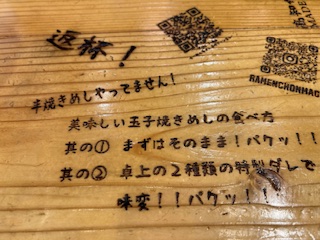 返杯！
半焼きめしやってません！
美味しい玉子焼きめしの食べ方
其の① まずはそのまま！パクッ！！
其の② 卓上の２種類の特製ダレで
味変！！パクッ！！
RAMENCHONMAG